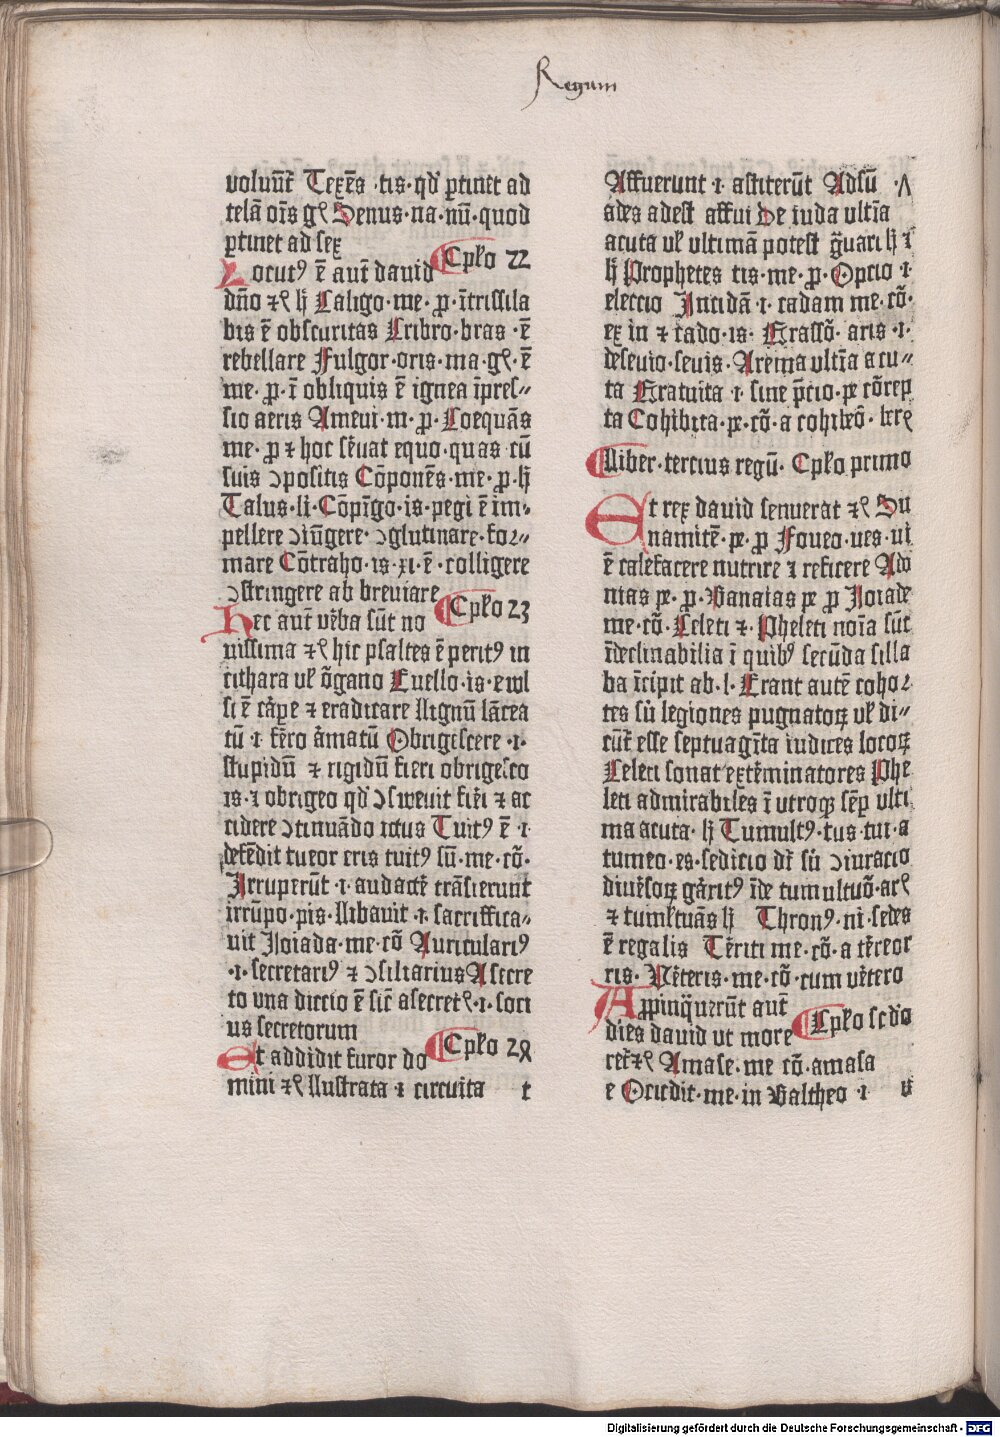 Regum
voluūt̄ Texēs ·tis· qd̓ ꝑtinet ad
telā oīs gͤ Senus·na·nū· quod
ꝑtinet ad sex
Cpło 22
Locutꝰ ē aut̄ dauid
dn̄o ⁊ͨ lꝫ Caligo·me·ꝓ·ītrissila
bis ē obscuritas Cribro·bras·ē
rebellare Fulgor·oris·ma·gͤ·ē
me·ꝓ·ī obliquis ē ignea īpres⸗
sio aeris Ameui·m·ꝓ·Coequās
me·ꝓ ⁊ hoc s̄uat equo·quas cū
suis ↄpositis Cōponēs·me·ꝓ·lꝫ
Talus·li·Cōpīgo·is·pegi ē im⸗
pellere ↄiūgere·ↄglutinare·for⸗
mare Cōtraho·is·xi·ē·colligere
ↄstringere ab breuiare
Cpło 23
Hec aut̄ v̄ba sūt no
uissima ⁊ͨ hic psaltes ē peritꝰ in
cithara vł ōgano Euello·is·ewl
si ē cāpe ⁊ eradicare Lignū lācea
tū ·i· fēro āmatū Obrigescere ·i·
stupidū ⁊ rigidū fieri obrigesco
is·⁊ obrigeo qd̓ ↄsweuit fiēi ⁊ ac
cidere ↄtinuādo ictus Tuitꝰ ē ·i·
defēdit tueor eris tuitꝰ sū·me·cō·
Irruperūt ·i· audactē trāsierunt
irrūpo·pis·Libauit ·i· sacriffica⸗
uit Ioiada·me·cō Auriculariꝰ
·i· secretariꝰ ⁊ ↄsiliarius A secre
to vna diccio ē sic̄ asecretͤ·i· soci
us secretorum
Cpło 24
Et addidit furor do
mini ⁊ͨ Lustrata ·i· circuita t
Affuerunt ·i· astiterūt Adsū ·A
ades adest affui De iuda vltīa
acuta vł vltimā potest g̈uari lꝫ ⁊
lꝫ Prophetes tis·me·ꝓ·Opcio ·i·
eleccio Incidā ·i· cadam me·cō·
ex in ⁊ cado·is·Grassō·aris·i·
deseuio·seuis·Arema vltīa acu⸗
ta Gratuita ·i· sine p̄cio·pe cōrep
ta Cohibita·pe·cō·a cohibeō·betͤ
Liber·tercius regū·Cpło primo
Et rex dauid senuerat ⁊ͨ Su
namitē·pe·ꝓ Foueo·ues·ui
ē calefacere nutrire ⁊ reficere Ado
nias pe·ꝓ·Banaias pe ꝓ Ioiade
me·cō·Celeti ⁊·Pheleti noīa sūt
īdeclinabilia ī quibꝰ secūda silla
ba īcipit ab·l·Erant autē cohor
tes sū legiones pugnatoꝝ vł di⸗
cūt̄ esse septuagīta iudices locoꝝ
Celeti sonat extēminatores Phe
leti admirabiles ī vtroqꝫ sēꝑ vlti
ma acuta·lꝫ Tumultꝰ·tus·tui·a
tumeo·es·sedicio dr̄ sū ↄiuracio
diuēsoꝝ gāritꝰ īde tumultuō·arͤ
⁊ tumłtuās lꝫ Thronꝰ·ni·sedes
ē regalis Tēriti me·cō·a tērcor
ris·Vēteris·me·cō·cum vētero
Appinq̄uerūt aut̄
Cpło sc̄do
dies dauid vt more
ret̄ ⁊ͨ Amase·me cō·amasa
e Occidit·me·in Baltheo ·i v
Digitalisierung gefördert durch die Deutsche Forschungsgemeinschaft - DFG